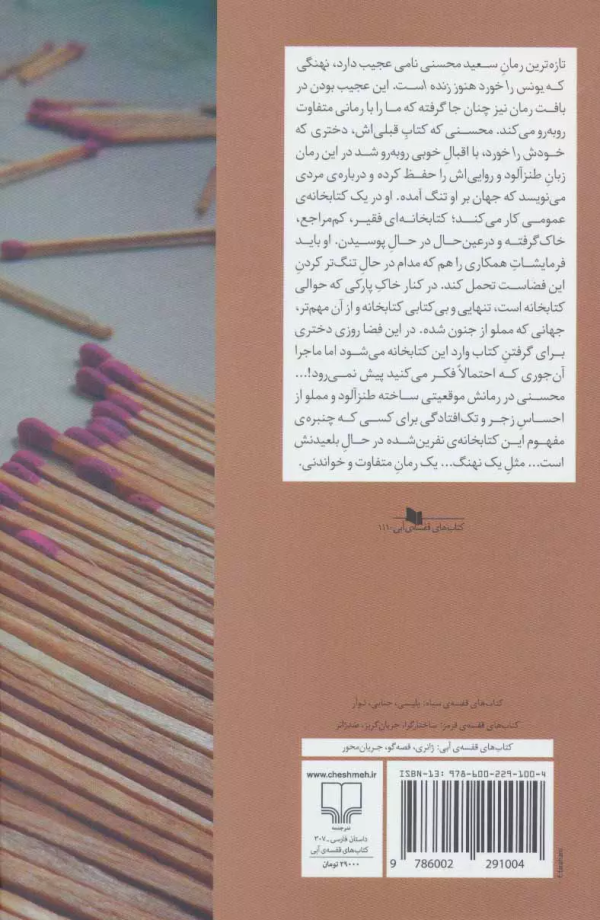 تازه‌ترین رمانِ سعید محسنی نامی عجیب دارد، نهنگی
که یونس را خورد هنوز زنده است. این عجیب بودن در
بافت رمان نیز چنان جا گرفته که ما را با رمانی متفاوت
روبه‌رو می‌کند. محسنی که کتابِ قبلی‌اش، دختری که
خودش را خورد، با اقبال خوبی روبه‌رو شد در این رمان
زبانِ طنزآلود و روایی‌اش را حفظ کرده و درباره‌ی مردی
می‌نویسد که جهان بر او تنگ آمده. او در یک کتابخانه‌ی
عمومی کار می‌کند؛ کتابخانه‌ای فقیر، کم‌مراجع،
خاک‌گرفته و درعین‌حال در حالِ پوسیدن. او باید
فرمایشاتِ همکاری را هم که مدام در حالِ تنگ‌تر کردنِ
این فضاست تحمل کند. در کنار خاکِ پارکی که حوالی
کتابخانه است، تنهایی و بی‌کتابی کتابخانه و از آن مهم‌تر،
جهانی که مملو از جنون شده. در این فضا روزی دختری
برای گرفتنِ کتاب وارد این کتابخانه می‌شود اما ماجرا
آن‌جوری که احتمالاً فکر می‌کنید پیش نمی‌رود!...
محسنی در رمانش موقعیتی ساخته طنزآلود و مملو از
احساسِ زجر و تک‌افتادگی برای کسی که چنبره‌ی
مفهوم این کتابخانه‌ی نفرین‌شده در حالِ بلعیدنش
است... مثلِ یک نهنگ... یک رمانِ متفاوت و خواندنی.
کتاب‌های قفسه‌ی آبی-۱۱۰
کتاب‌های قفسه‌ی سیاه: پلیسی، جنایی، نوآر
کتاب‌های قفسه‌ی قرمز: ساختارگرا، جریان‌گریز، ضدژانر
کتاب‌های قفسه‌ی آبی: ژانری، قصه‌گو، جریان‌محور
www.cheshmeh.ir
نشرچشمه
داستان فارسی-۳۰۷
کتاب‌های قفسه‌ی آبی
۲۹۰۰۰ تومان
ISBN-13: 978-600-229-100-4
9 786002 291004